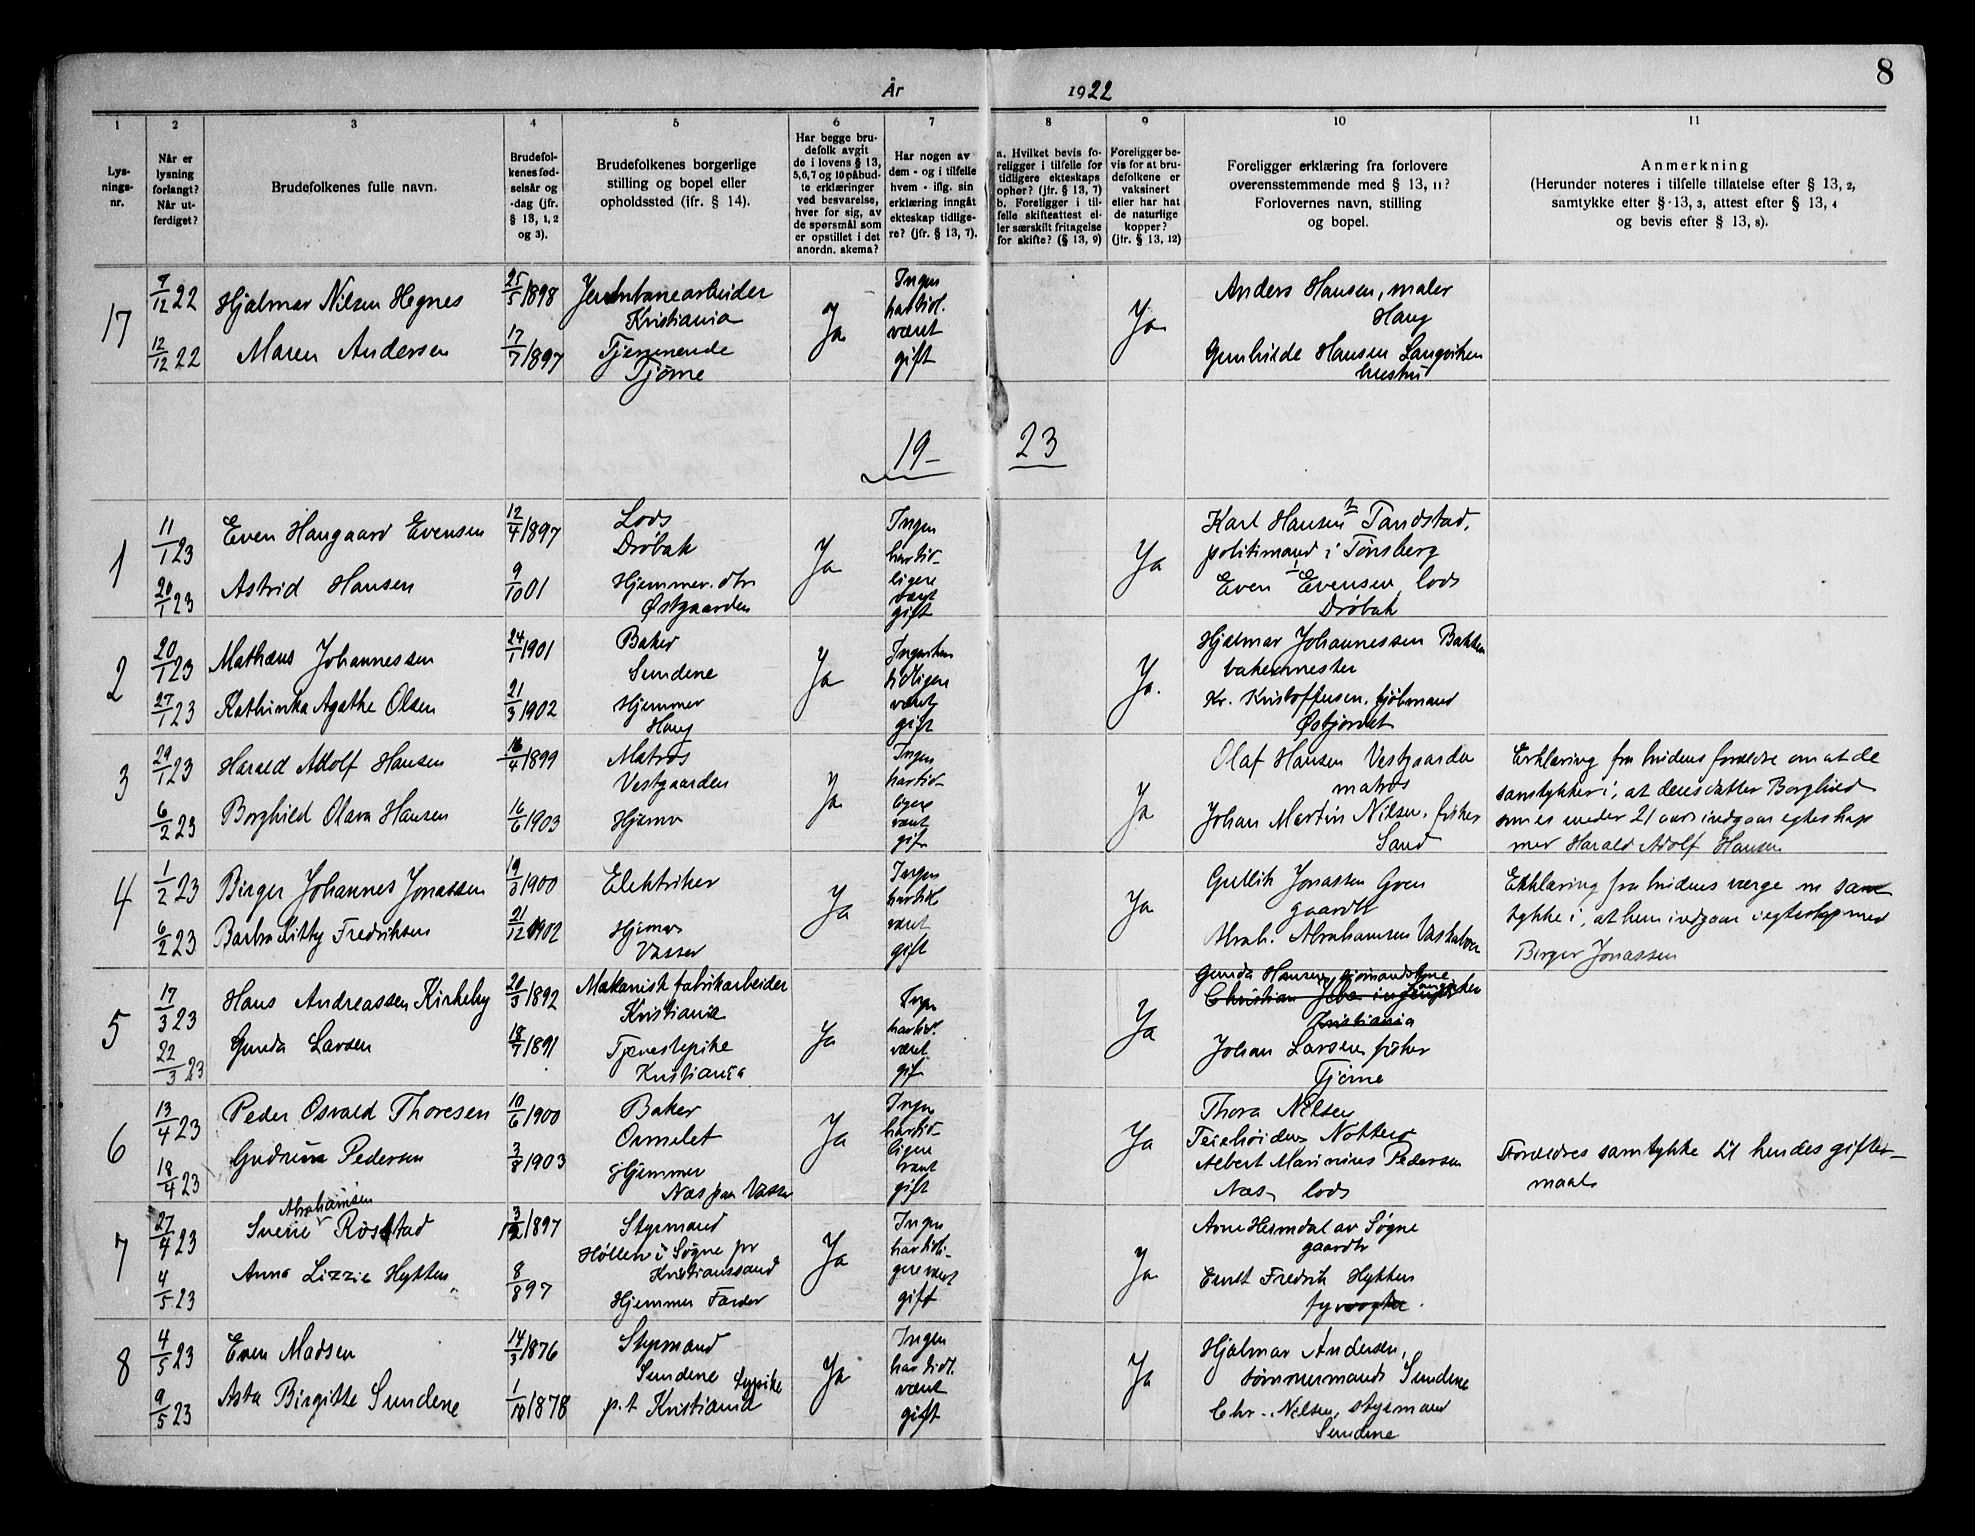 8
År 1922
1 2 3 4 5 6 7 8 9 10 11
Lys-
nings-
nr.
Når er
lysning
forlangt?
Når ut-
ferdiget?
Brudefolkenes fulle navn.
Brudefol-
kenes fød-
selsår og
-dag (jfr.
§ 13, 1, 2
og 3).
Brudefolkenes borgerlige
stilling og bopel eller
opholdssted (ifr. § 14).
Har begge bru-
defolk avgit
de i lovens § 13,
5, 6, 7 og 10 påbud-
te erklæringer
ved besvarelse,
hver for sig, av
de spørsmål som
er opstillet i det
anordn. skema?
Har nogen av
dem - og i tilfelle
hvem - iflg. sin
erklæring inngåt
ekteskap tidlige-
re? (jfr. § 13, 7).
a. Hvilket bevis fo-
religger i tilfelle for
tidligere ekteskaps
ophør? (jfr. § 13, 7)
b. Foreligger i til-
felle skifteattest el-
ler særskilt fritagelse
for skifte? (§ 13, 9)
Foreligger be-
vis for at bru-
defolkene er
vaksinert
eller har hat
de naturlige
kopper?
(jfr. § 13, 12)
Foreligger erklæring fra forlovere
overensstemmende med § 13, 11?
Forlovernes navn, stilling
og bopel.
Anmerkning
(Herunder noteres i tilfelle tillatelse efter § 13, 2,
samtykke efter § 13, 3, attest efter § 13, 4
og bevis efter § 13, 8).
17
9/12 22
12/12 22
Hjalmar Nilsen Hegnes
Maren Andersen
25/5 1898
17/7 1897
Jernbanearbeider
Kristiania
Tjenende
Tjøme
Ja
Ingen
har tidl.
været
gift
Ja
Anders Hansen, maler
Haug
Gunhilde Hansen Langviken
hustru
19-23
1
11/1 23
20/1 23
Even Haugaard Evensen
Astrid Hansen
12/4 1897
9/10 01
Lods
Drøbak
Hjemmev. dtr
Østgaarden
Ja
Ingen
har tid-
ligere
været
gift
Ja
Karl Hansen Tandstad,
politimand i Tønsberg
Even Evensen, lods
Drøbak
2
20/1 23
27/1 23
Mathæus Johannessen
Kathinka Agathe Olsen
24/1 1901
21/3 1902
Baker
Sundene
Hjemmev
Haug
Ja
Ingen har
tidligere
været
gift
Ja.
Hjalmar Johannessen Bakken
bakermester
Kr. Kristoffersen, sjømand
3
29/1 23
6/2 23
Harald Adolf Hansen
Borghild Olava Hansen
16/4 1899
16/6 1903
Matros
Vestgaarden
Hjemv
Ja
Ingen
har tid-
ligere
været
gift
Ja
Olaf Hansen Vestgaarden
matros
Johan Martin Nilsen, fisker
Sand
Erklæring fra brudens forældre om at de
samtykker i, at deres datter Borghild
som er under 21 aar indgaar egteskap
med Harald Adolf Hansen
4
1/2 23
6/2 23
Birger Johannes Jonassen
Barbra Kitty Fredriksen
19/3 1900
21/12 1902
Elektriker
Hjemv
Vasser
Ja
Ingen
har tidl
været
gift
Ja
Gullik Jonassen
gaardbr
Abrah. Abrahamsen
Erklæring fra brudens værge m sam
tykke i, at hun indgaar i egteskap med
Birger Jonassen
5
17/3 23
22/3 23
Hans Andreassen Kirkeby
Gunda Larsen
20/3 1892
18/7 1891
Mekanisk fabrikarbeider
Kristiania
Tjenestepike
Kristiania
Ja
Ingen
har tid.
været
gif
Ja
Gunda Hansen, sjømandskone
Langviken
Kristiania
Johan Larsen fisker
Tjøme
6
13/4 23
18/4 23
Peder Osvald Thoresen
Gudrun Pedersen
10/6 1900
3/8 1903
Baker
Ormelet
Hjemmev
Næs paa Vasser
Ja
Ingen
har tid-
ligere
vært
gift
Ja
Thora Nilsen
Teiehøiden Nøtterø
Albert Marinius Pedersen
Næs, lods
Forældres samtykke til hendes gifter-
maal
7
27/4 23
4/5 23
Abrahamsen
Sverre Røsstad
Anna Lizzie Hytten
3/12 1897
8/8 97
Styrmand
Høllen i Søgne pr
Kristianssand
Hjemmev Færder
Ja
Ingen
har tidli-
gere vært
gift
Ja
Arne Heimdal av Søgne
gaardbr
Ernst Fredrik Hytten
fyrvogter.
8
4/5 23
9/5 23
Even Madsen
Asta Birgitte Sundene
14/3 1876
1/10 1878
Styrmand
Sundene
typike
p.t Kristiania
Ja
Ingen
har tidl.
været
gift
Ja
Hjalmar Andersen,
tømmermand Sundene
Chr. Nilsen, styrmand
Sundene